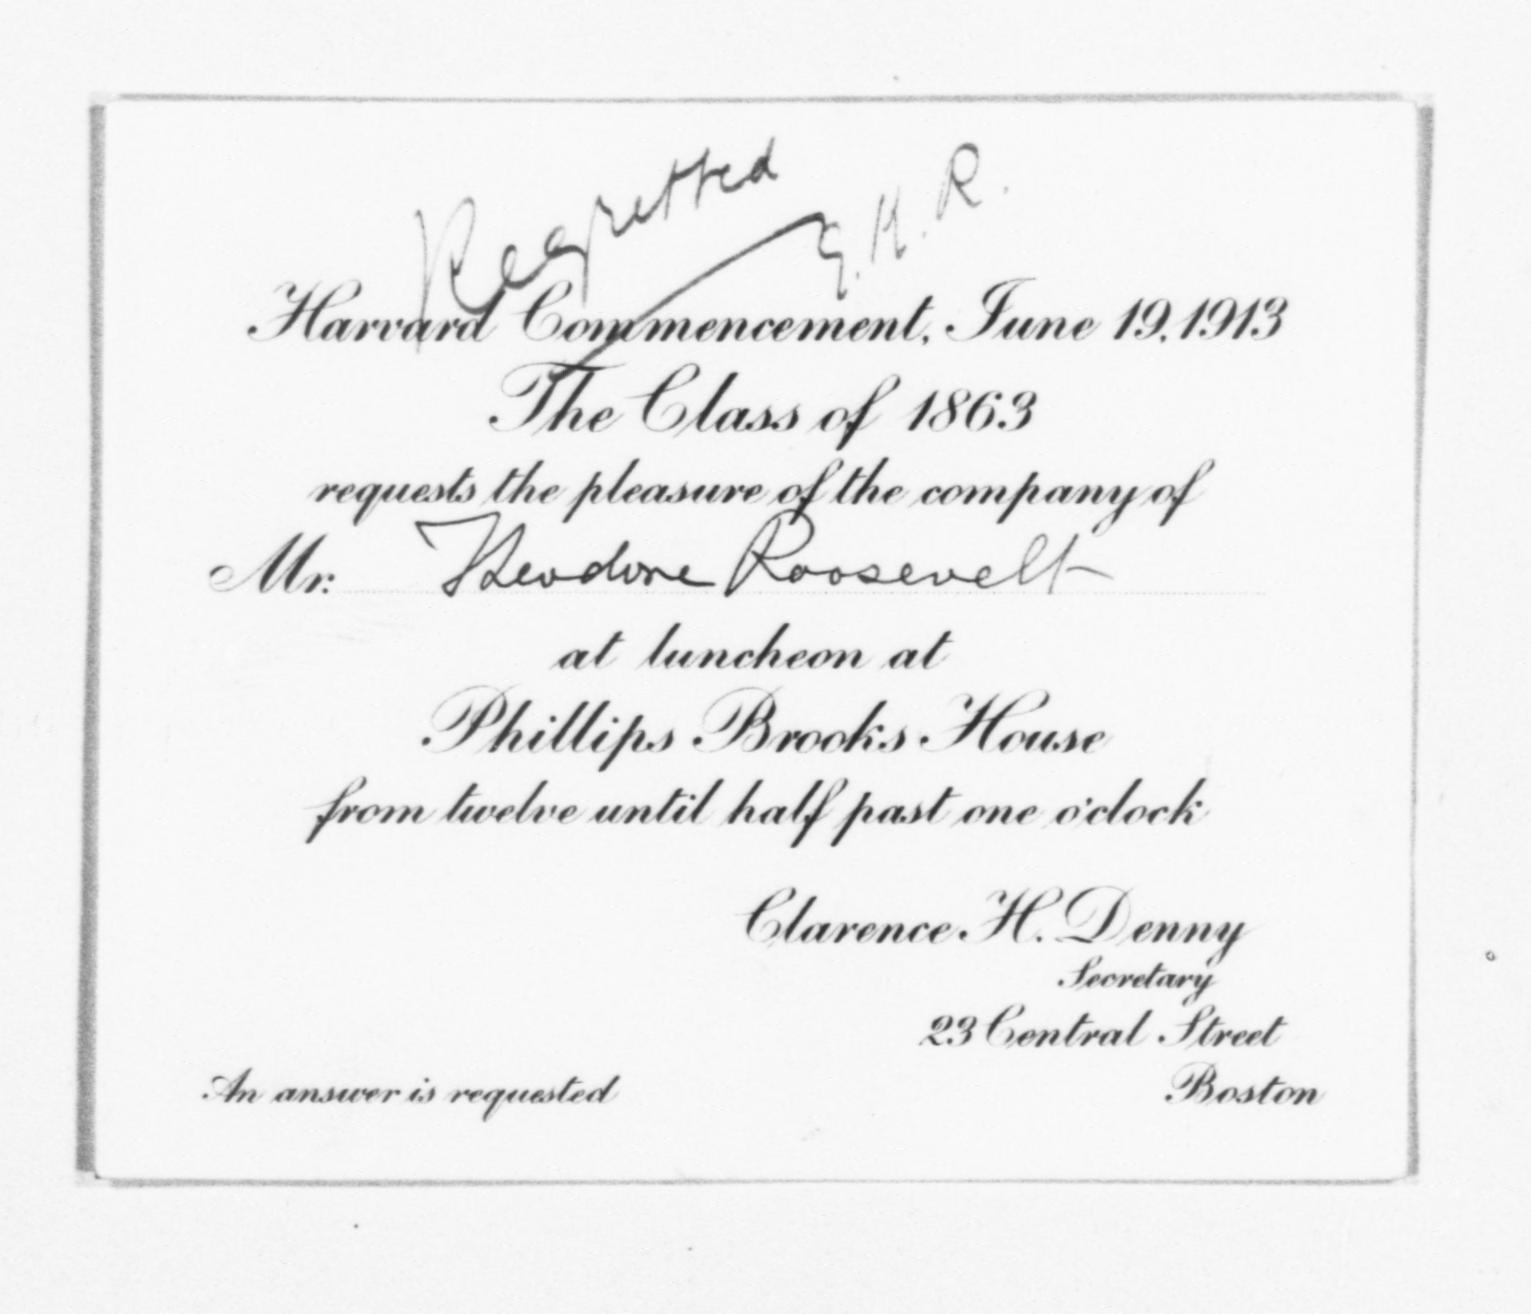 Regretted
E.H.R.
Harvard Commencement, June 19, 1913
The Class of 1863
requests the pleasure of the company of
Mr. Theodore Roosevelt
at luncheon at
Phillips Brooks House
from twelve until half past one o'clock
Clarence H. Denny
Secretary
23 Central Street
Boston
An answer is requested